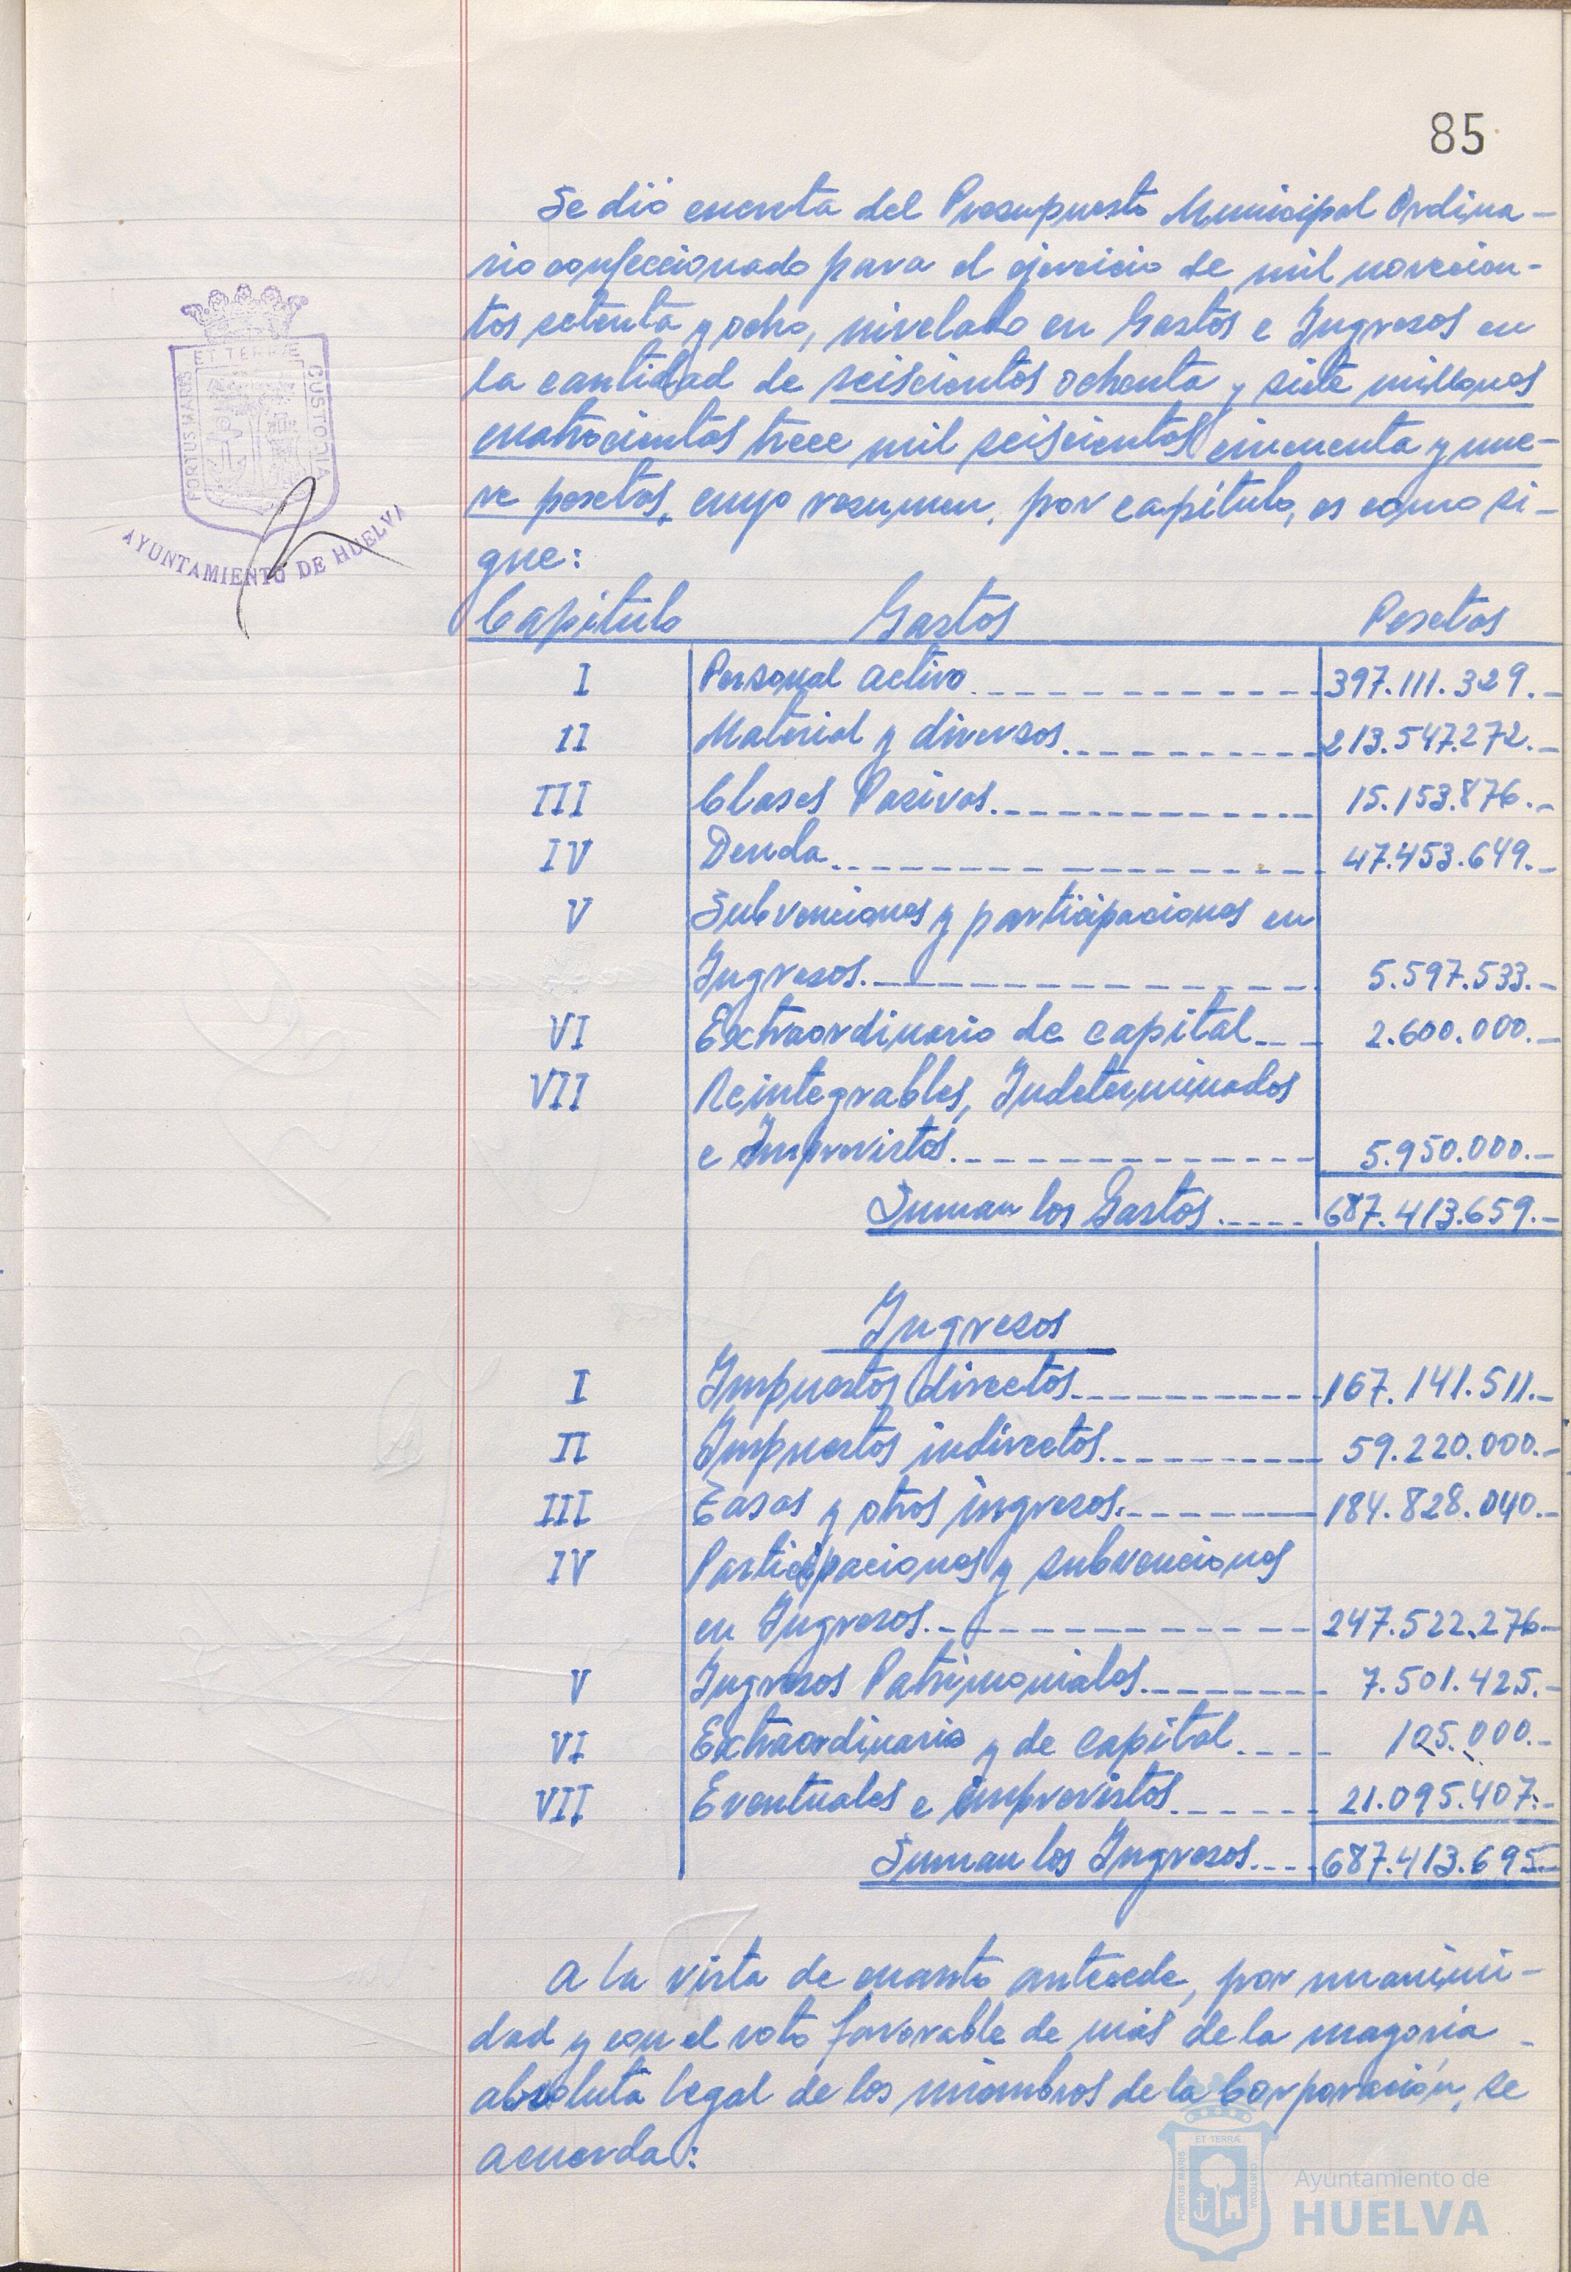 85
Se dió cuenta del Presupuesto Municipal Ordina-
rio confeccionado para el ejercicio de mil novecien-
tos setenta y ocho, nivelado en Gastos e Ingresos en
la cantidad de seiscientos ochenta y siete millones
cuatrocientos trece mil seiscientos cincuenta y nue-
ve pesetas, cuyo resumen, por capítulo, es como si-
gue:
PORTUS MARIS ET TERRÆ CUSTODIA
AYUNTAMIENTO DE HUELVA
Capítulo Gastos Pesetas
I Personal activo 397.111.329.-
II Material y diversos 213.547.272.-
III Clases Pasivas 15.153.876.-
IV Deuda 47.453.649.-
V Subvenciones y participaciones en
Ingresos 5.597.533.-
VI Extraordinario de capital 2.600.000.-
VII Reintegrables, Indeterminados
e Imprevistos 5.950.000.-
Suman los Gastos 687.413.659.-
Ingresos
I Impuestos directos 167.141.511.-
II Impuestos indirectos 59.220.000.-
III Tasas y otros ingresos 184.828.040.-
IV Participaciones y subvenciones
en Ingresos 247.522.276-
V Ingresos Patrimoniales 7.501.425.-
VI Extraordinario y de capital 105.000.-
VII Eventuales e imprevistos 21.095.407.-
Suman los Ingresos 687.413.695-
A la vista de cuanto antecede, por unanimi-
dad y con el voto favorable de más de la mayoría
absoluta legal de los miembros de la Corporación, se
acuerda:
PORTUS MARIS ET TERRÆ CUSTODIA
Ayuntamiento de
HUELVA